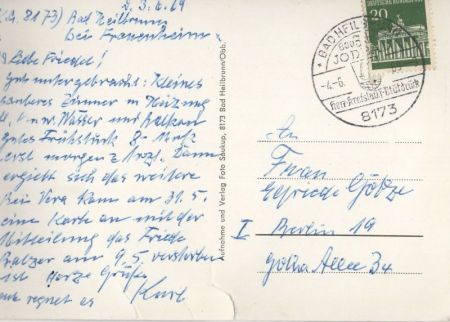 d. 3.6.69
(D. 8173) Bad Heilbrunn
bei Frauenheim
Liebe Friedel!
Gut untergebracht: Kleines
sauberes Zimmer m Heizung
k. u. w. Wasser und Balkon
gutes Frühstück 8.-
erst morgen z Arzt. Dann
ergiebt sich das weitere
Bei Vera kam am 31.5.
eine Karte an mit der
Mitteilung das Friede
am 9.5. verstorben
ist Herzl Grüße
regnet es Karl
Aufnahme und Verlag Foto Stukup, 8173 Bad Heilbrunn/Obb.
20
DEUTSCHE BUNDESPOST
BAD HEIL
JOD
-4.-6.
Herz-Kreislauf-Blutdruck
8173
An
Frau
Elfriede Götze
I Berlin 19
Gotha Allee 34